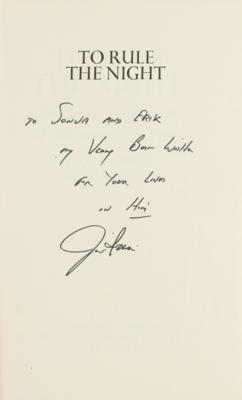 TO RULE
THE NIGHT
TO SONJA AND ERIK
MY VERY BEST WISHES
FOR YOUR LIVES
IN HIM